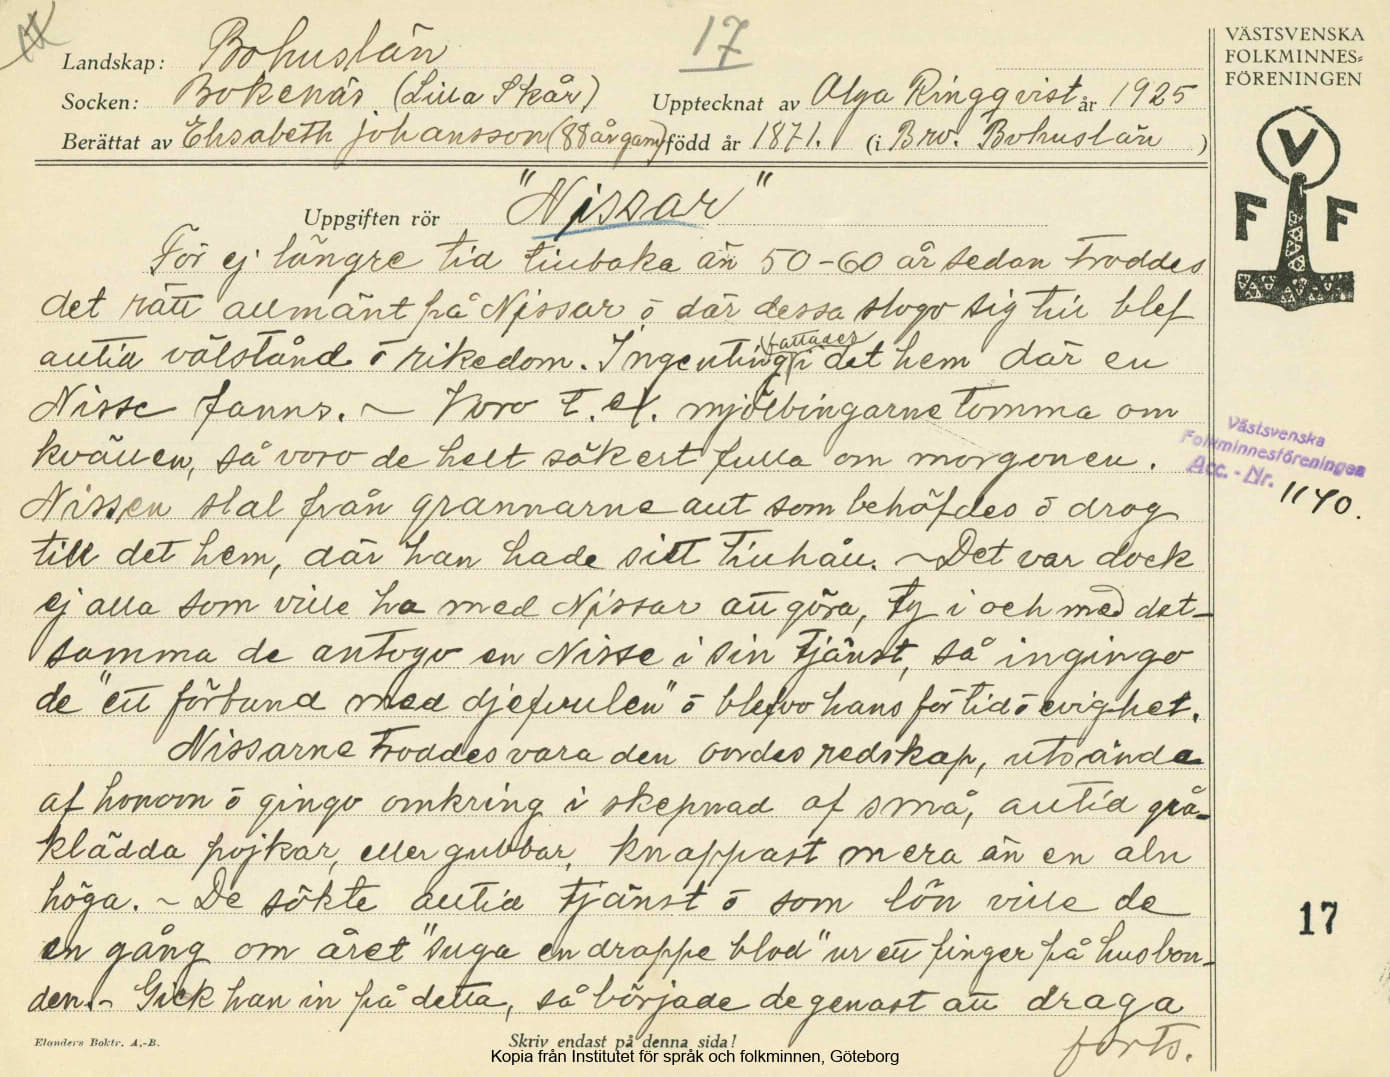 Landskap: Bohuslän
17
Socken: Bokenäs (Lilla Skår) Upptecknat av Olga Ringqvist år 1925
Berättat av Elisabeth Johansson (88 år gam) född år 1871. (i Bro. Bohuslän )
VÄSTSVENSKA
FOLKMINNES=
FÖRENINGEN
V
F F
Uppgiften rör "Nissar"
För ej längre tid tillbaka än 50-60 år sedan troddes
det rätt allmänt på Nissar ō där dessa slogo sig till blef
alltid välstånd ō rikedom. Ingenting fattades i det hem där en
Nisse fanns. ~ Voro t. ex. mjölbingarne tomma om
kvällen, så voro de helt säkert fulla om morgonen.
Nissen stal från grannarne allt som behöfdes ō drog
till det hem, där han hade sitt tillhåll. ~ Det var dock
ej alla som ville ha med Nissar att göra, ty i och med det-
samma de antogo en Nisse i sin tjänst, så ingingo
de "ett förbund med djefvulen" ō blefvo hans för tid ō evighet.
Nissarne troddes vara den ondes redskap, utsända
af honom ō gingo omkring i skepnad af små, alltid grå-
klädda pojkar, eller gubbar, knappast mera än en aln
höga. ~ De sökte alltid tjänst ō som lön ville de
en gång om året "suga en droppe blod" ur ett finger på husbon-
den. ~ Gick han in på detta, så började de genast att draga
forts.
Västsvenska
Folkminnesföreningen
Acc. - Nr. 1140.
17
Elanders Boktr. A.-B.
Skriv endast på denna sida!
Kopia från Institutet för språk och folkminnen, Göteborg